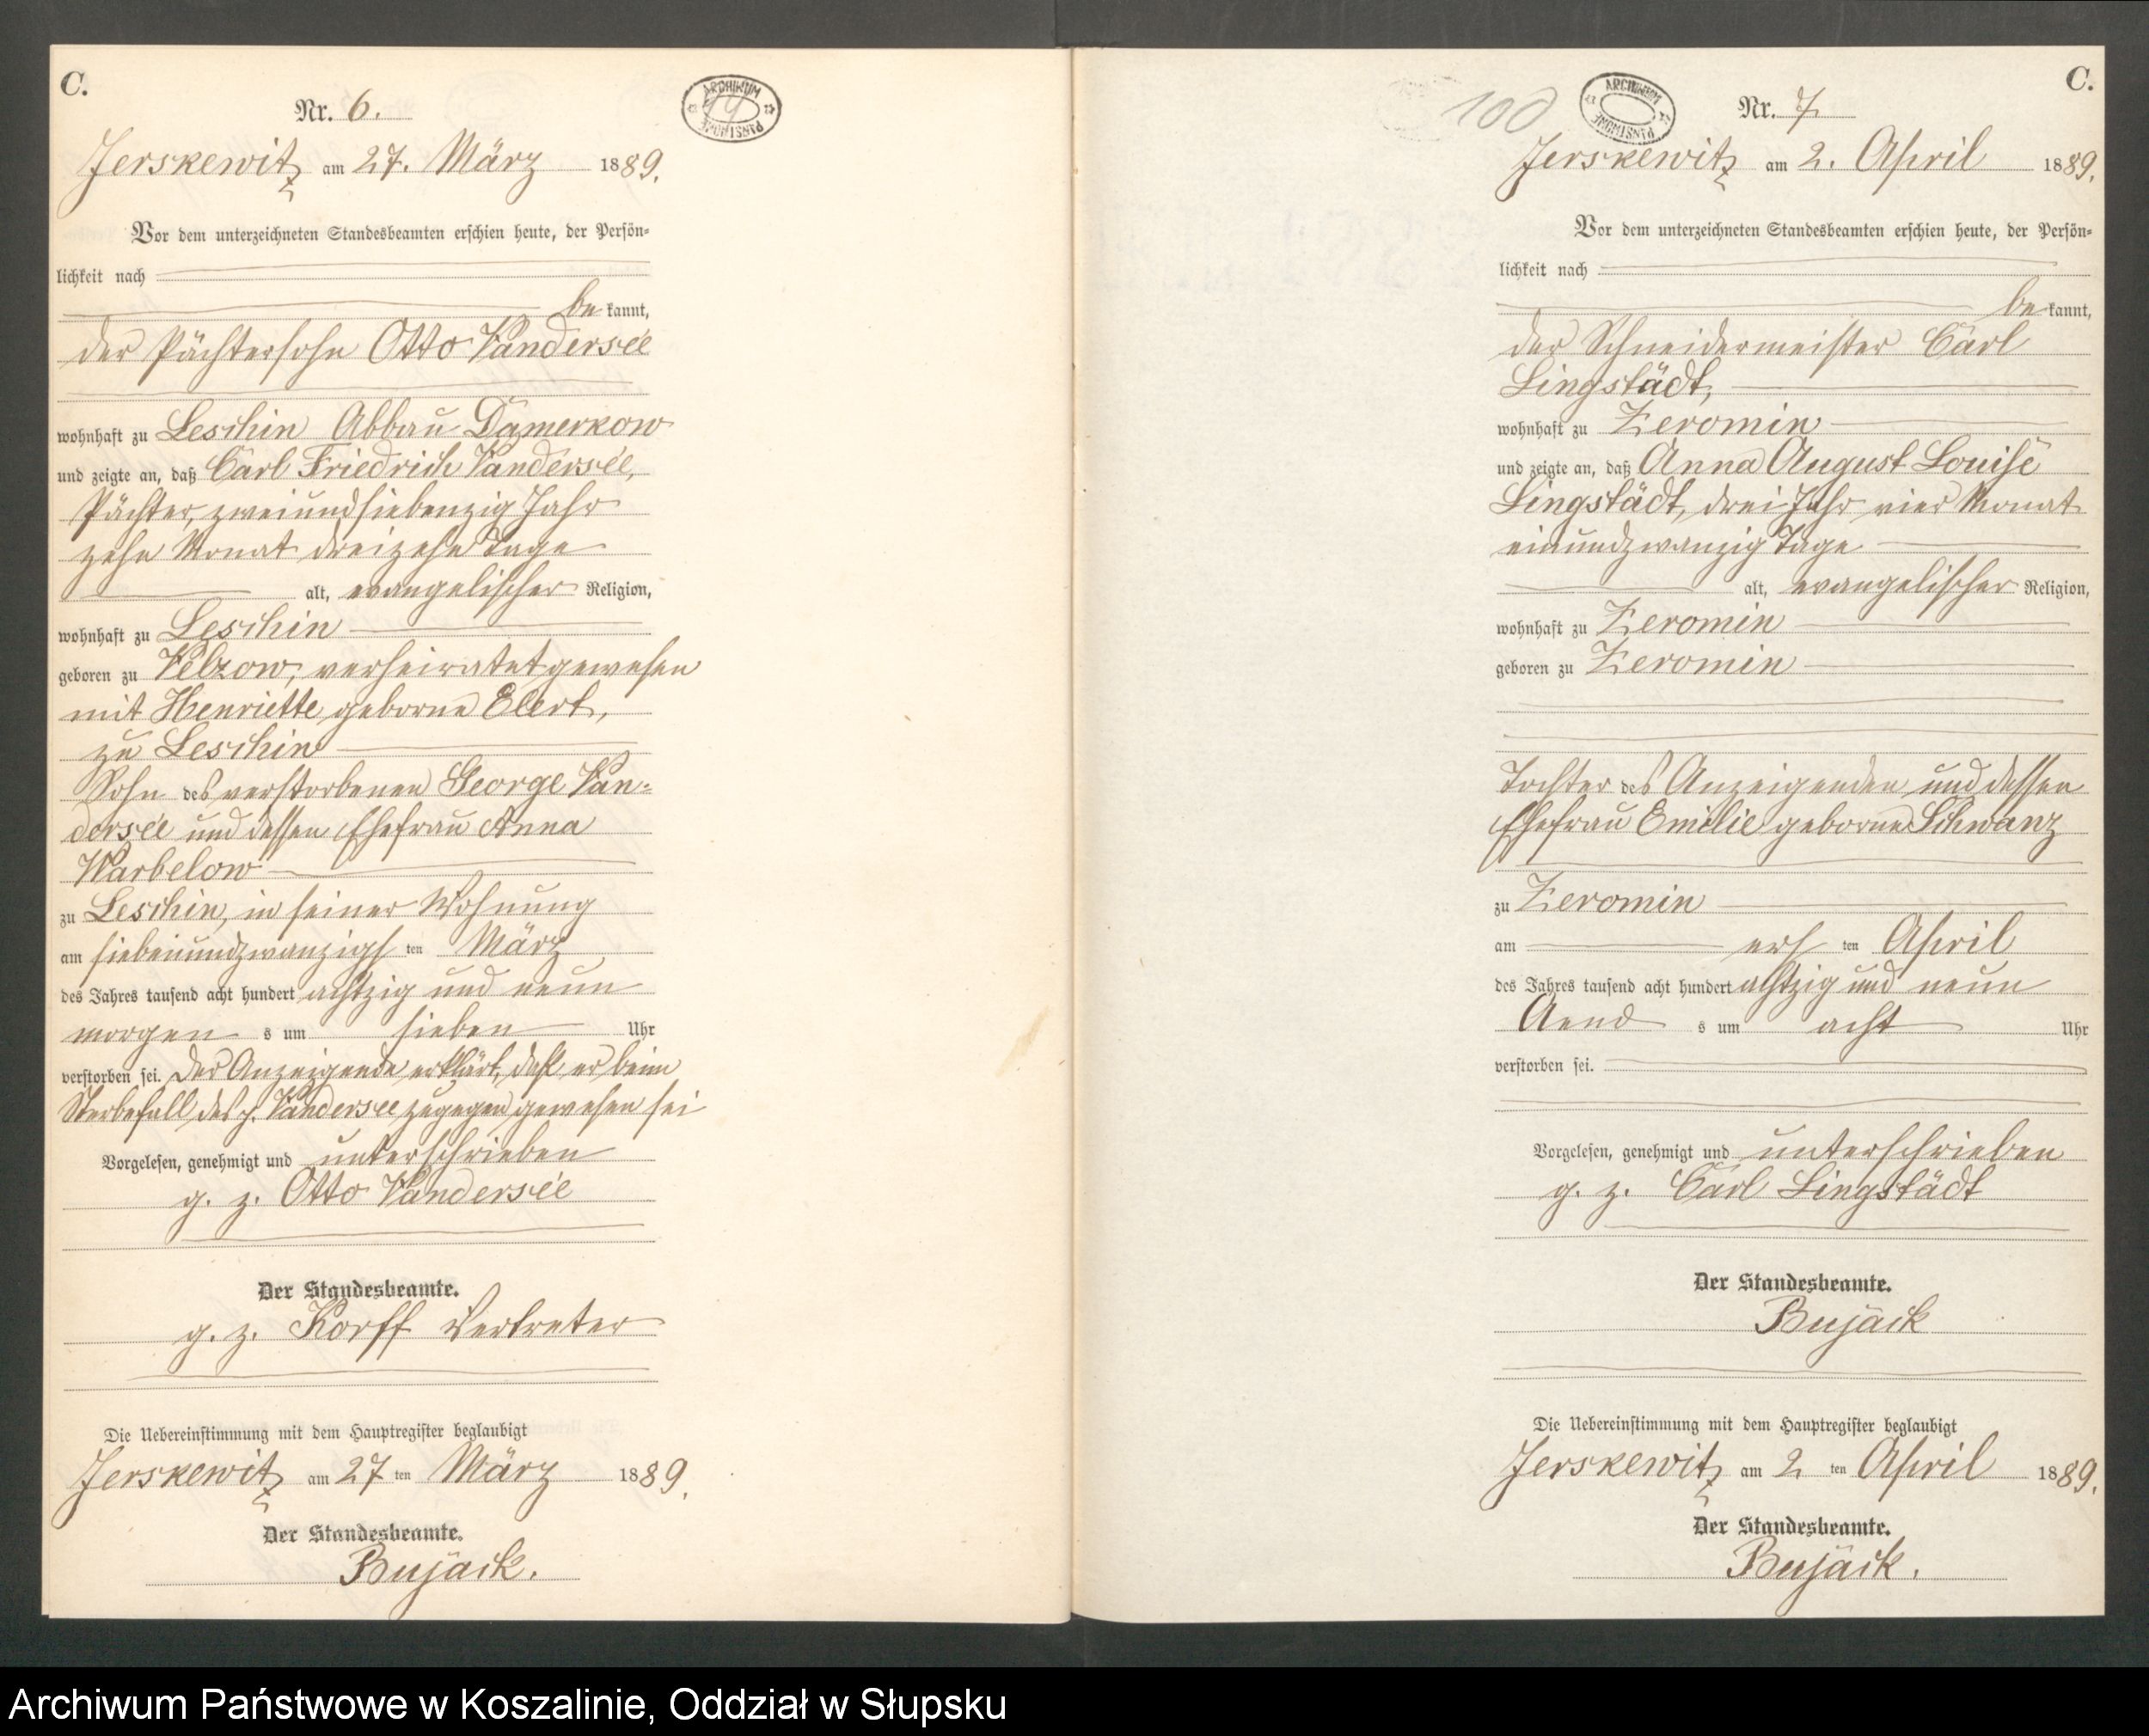 C.
Nr. 6.
ARCHIWUM PAŃSTWOWE
Jerskewitz am 27. März 1889.
Vor dem unterzeichneten Standesbeamten erschien heute, der Persön-
lichkeit nach
be kannt,
der Pächtersohn Otto Vandersee
wohnhaft zu Leschin Abbau Damerkow
und zeigte an, daß Carl Friedrich Vandersee,
Pächter, zweiundsiebenzig Jahr
zehn Monat dreizehn Tage
alt, evangelischer Religion,
wohnhaft zu Leschin
geboren zu Velzow, verheiratet gewesen
mit Henriette geborne Elert,
zu Leschin
Sohn des verstorbenen George Van-
dersee und dessen Ehefrau Anna
Warbelow
zu Leschin, in seiner Wohnung
am siebenundzwanzigsten März
des Jahres tausend acht hundert achtzig und neun
morgens um sieben Uhr
verstorben sei. Der Anzeigende erklärt, daß er beim
Sterbefall des p. Vandersee zugegen gewesen sei
Vorgelesen, genehmigt und unterschrieben
g. z. Otto Vandersee
Der Standesbeamte.
g. z. Korff Vertreter
Die Uebereinstimmung mit dem Hauptregister beglaubigt
Jerskewitz am 27 ten März 1889.
Der Standesbeamte.
Bujack.
C.
100
ARCHIWUM PAŃSTWOWE
Nr. 7
Jerskewitz am 2. April 1889.
Vor dem unterzeichneten Standesbeamten erschien heute, der Persön-
lichkeit nach
be kannt,
der Schneidermeister Carl
Lingstädt,
wohnhaft zu Zeromin
und zeigte an, daß Anna August Louise
Lingstädt, drei Jahr vier Monat
einundzwanzig Tage
alt, evangelischer Religion,
wohnhaft zu Zeromin
geboren zu Zeromin
Tochter des Anzeigenden und dessen
Ehefrau Emilie geborne Schwanz
zu Zeromin
am ersten April
des Jahres tausend acht hundert achtzig und neun
Aends um acht Uhr
verstorben sei.
Vorgelesen, genehmigt und unterschrieben
g. z. Carl Lingstädt
Der Standesbeamte.
Bujack
Die Uebereinstimmung mit dem Hauptregister beglaubigt
Jerskewitz am 2 ten April 1889.
Der Standesbeamte.
Bujack.
Archiwum Państwowe w Koszalinie, Oddział w Słupsku